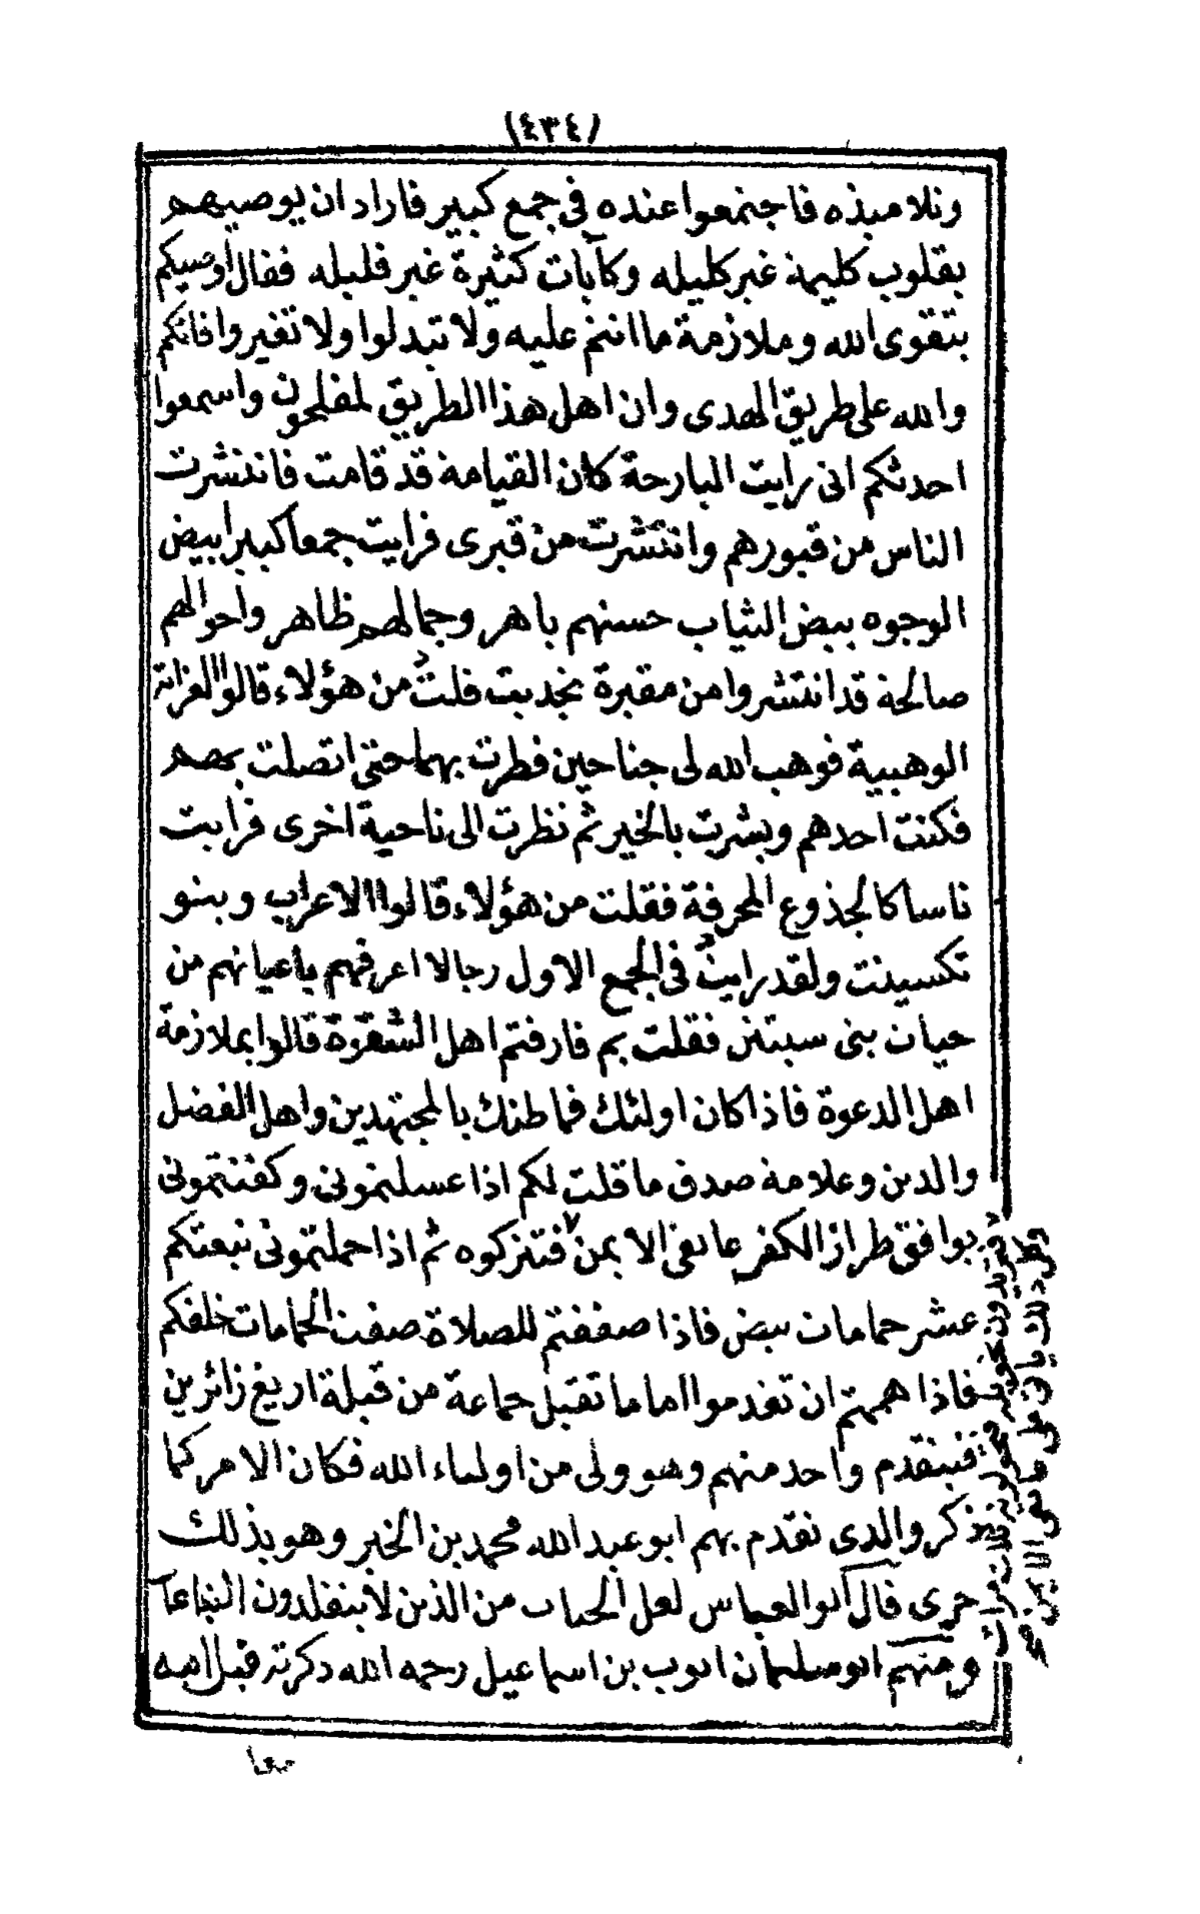 (٤٣٤)
وتلاميذه فاجتمعوا عنده في جمع كبير فاراد ان يوصيهم
بقلوب كليمة غير كليله وكآبات كثيرة غير قليله فقال اوصيكم
بتقوى الله وملازمة ما انتم عليه ولا تبدلوا ولا تغيروا فانكم
والله على طريق الهدى وان اهل هذا الطريق لمفلحون واسمعوا
احدثكم انى رايت البارحة كان القيامة قد قامت فانتشرت
الناس من قبورهم وانتشرت من قبرى فرايت جمعا كبيرا بيض
الوجوه بيض الثياب حسنهم باهر وجمالهم ظاهر واحوالهم
صالحة قد انتشروا من مقبرة بجديت قلت من هؤلاء قالوا العزابة
الوهبية فوهب الله لى جناحين فطرت بهما حتى اتصلت بهم
فكنت احدهم وبشرت بالخير ثم نظرت الى ناحية اخرى فرايت
ناسا كالجذوع المحرفة فقلت من هؤلاء قالوا الاعراب وبنو
تكسينت ولقد رايت فى الجمع الاول رجالا اعرفهم باعيانهم من
حيان بنى سبتنن فقلت بم فارقتم اهل الشقرة قالوا بملازمة
اهل الدعوة فاذا كان اولئك فما ظنك بالمجتهدين واهل الفضل
والدين وعلامة صدق ما قلت لكم اذا غسلتمونى وكفنتمونى
يوافق طراز الكفر عاتقى الايمن فتتركوه ثم اذا حملتمونى تبعتكم
عشر حمامات بيض فاذا صففتم للصلاة صفت الحمامات خلفكم
فاذا هممتم ان تقدموا اماما تقبل جماعة من قبلة اريغ زائرين
فيتقدم واحد منهم وهو ولى من اولياء الله فكان الامر كما
ذكر والذى تقدم بهم ابو عبد الله محمد بن الخير وهو بذلك
حرى قال ابو العباس لعل الحباب من الذين لا يتقلدون
ومنهم ابو سليمان ايوب بن اسماعيل رحمه الله ذكرته قبل